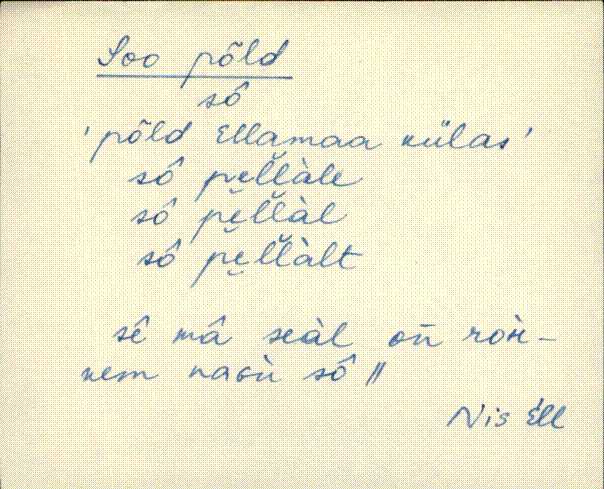 Soo põld
sô
'põld Ellamaa külas'
sô pe̬l̆l̆àle
sô pe̬l̆l̆àl
sô pe̬l̆l̆àlt
sê mâ seàl on̄ roh̀-
kem nagù sô //
Nis Ell